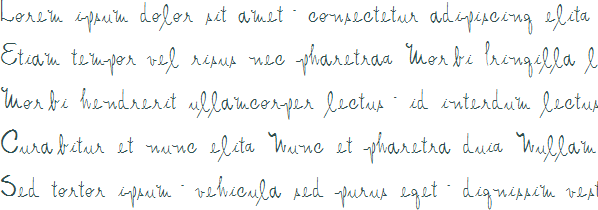 Lorem ipsum dolor sit amet - consectetur adipiscing elita
Etiam tempor vel risus nec pharetraa Morbi lringilla l
Morbi hendrerit ullamcorper lectus - id interdum lectus
Curabitur et nunc elita Nunc et pharetra duia Nullam
Sed tortor ipsum - vehicula sed purus eget - dignissim vest